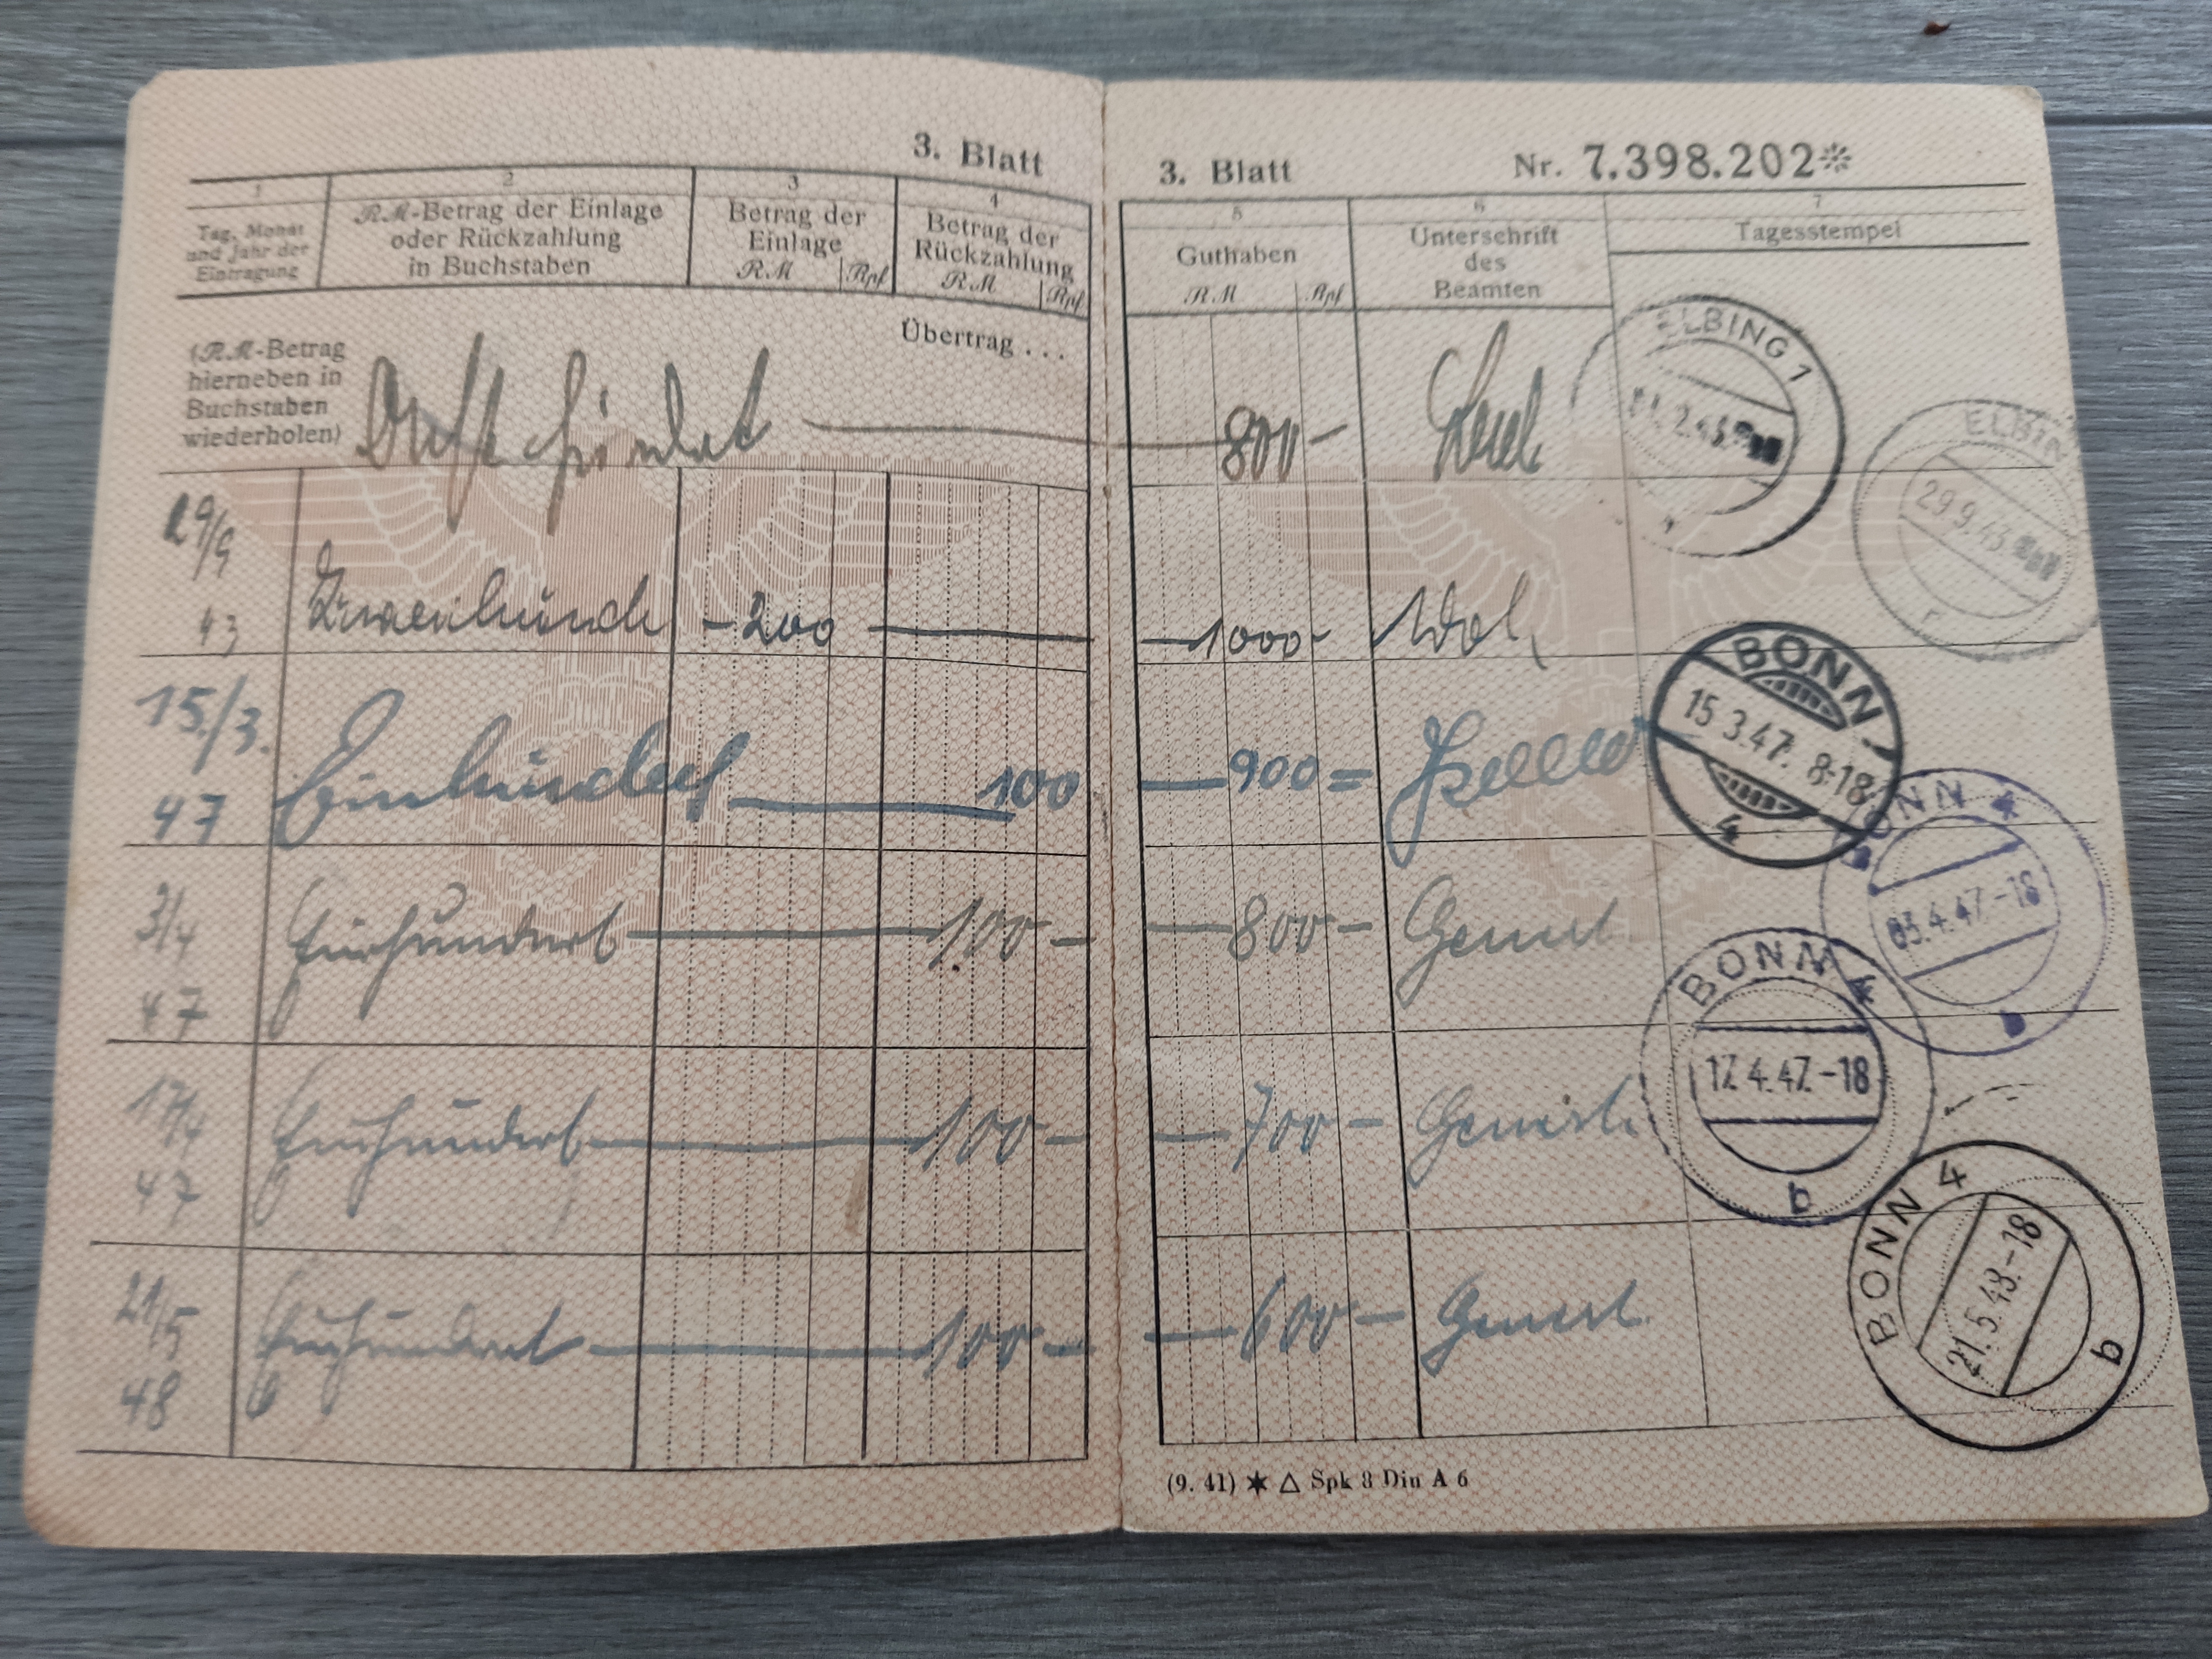 3. Blatt
1 2 3 4
Tag, Monat und Jahr der Eintragung
RM-Betrag der Einlage oder Rückzahlung in Buchstaben
Betrag der Einlage
RM Rpf
Betrag der Rückzahlung
RM Rpf
(RM-Betrag
hierneben in
Buchstaben
wiederholen)
Übertrag . . .
29/9
43
200
15./3.
47
Einhundert
100
3/4
47
Einhundert
100 -
17/4
47
Einhundert
100 -
21/5
48
Einhundert
100 -
3. Blatt Nr. 7.398.202*
5 6 7
Guthaben
RM Rpf
Unterschrift
des
Beamten
Tagesstempel
800 -
1000 -
900 =
800 -
700 -
600 -
ELBING 1
ELBIN
29.9.43
BONN
15.3.47. 8-18
4
BONN 4
03.4.47.-18
b
BONN 4
17.4.47.-18
b
BONN 4
21.5.48.-18
b
(9. 41) ★ △ Spk 3 Din A 6